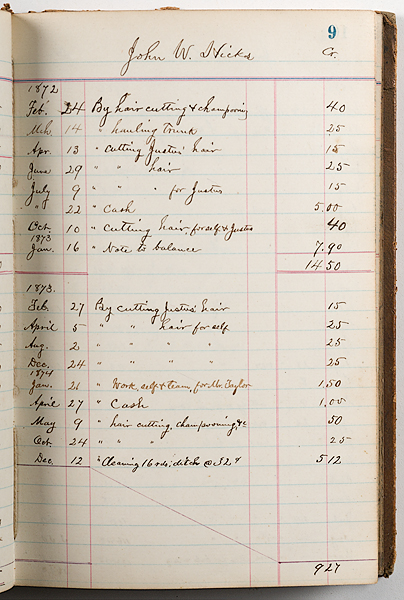 9
John W. Hicks Cr.
1872
Feb. 24 By hair cutting & champooning 40
Mch. 14 " hauling trunk 25
Apr. 13 " cutting Justus' hair 15
June 29 " " hair 25
July 9 " " " for Justus 15
" 22 " Cash 5.00
Oct. 10 " Cutting hair, for self & Justus 40
1873
Jan. 16 " Note to balance 7.90
14.50
1873.
Feb. 27 By cutting Justus' hair 15
April 5 " " hair for self 25
Aug. 2 " " " " 25
Dec. 24 " " " " 25
1874
Jan. 21 " Work, self & team, for Mr. Taylor 1.50
April 27 " Cash 1.00
May 9 " hair cutting, champooning, &c 50
Oct. 24 " " " 25
Dec. 12 " Cleaning 16 rds. ditch @ 32¢ 5 12
9 27